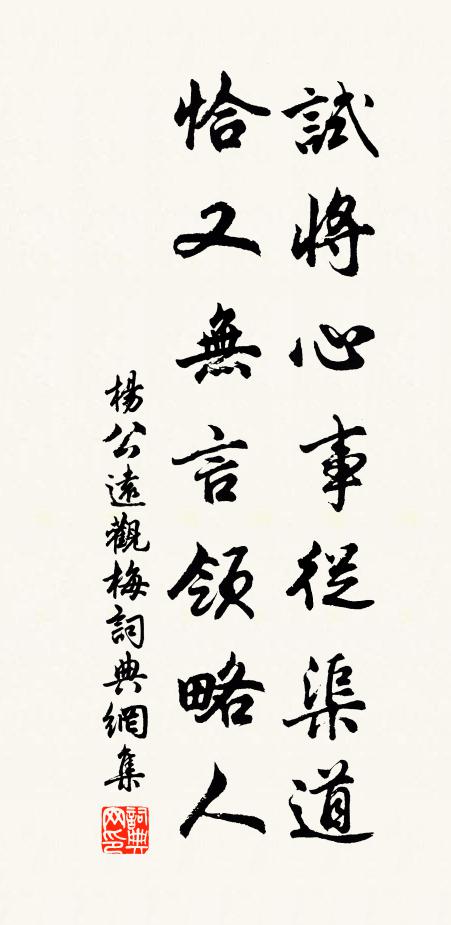 試將心事從渠道
恰又無言領略人
楊公遠觀梅詞典網集
詞典網印